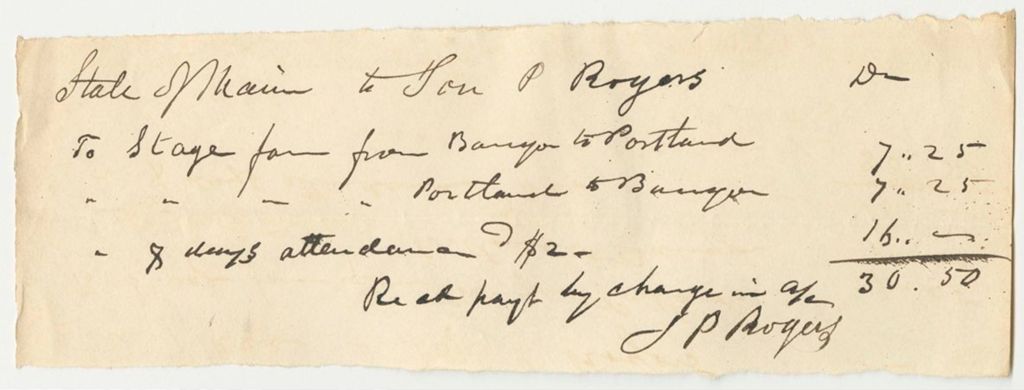 State of Maine to Jon P Rogers Dr
To Stage fare from Bangor to Portland 7..25
" " " " Portland to Bangor 7..25
" 8 days attendance @ $2 - 16.. —
Recd payt by charge in a/c 30.50
J P Rogers